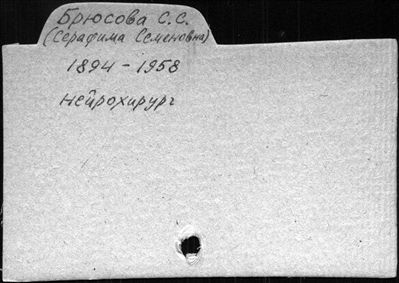 Брюсова С.С.
(Серафима Семеновна)
1894 - 1958
нейрохирург